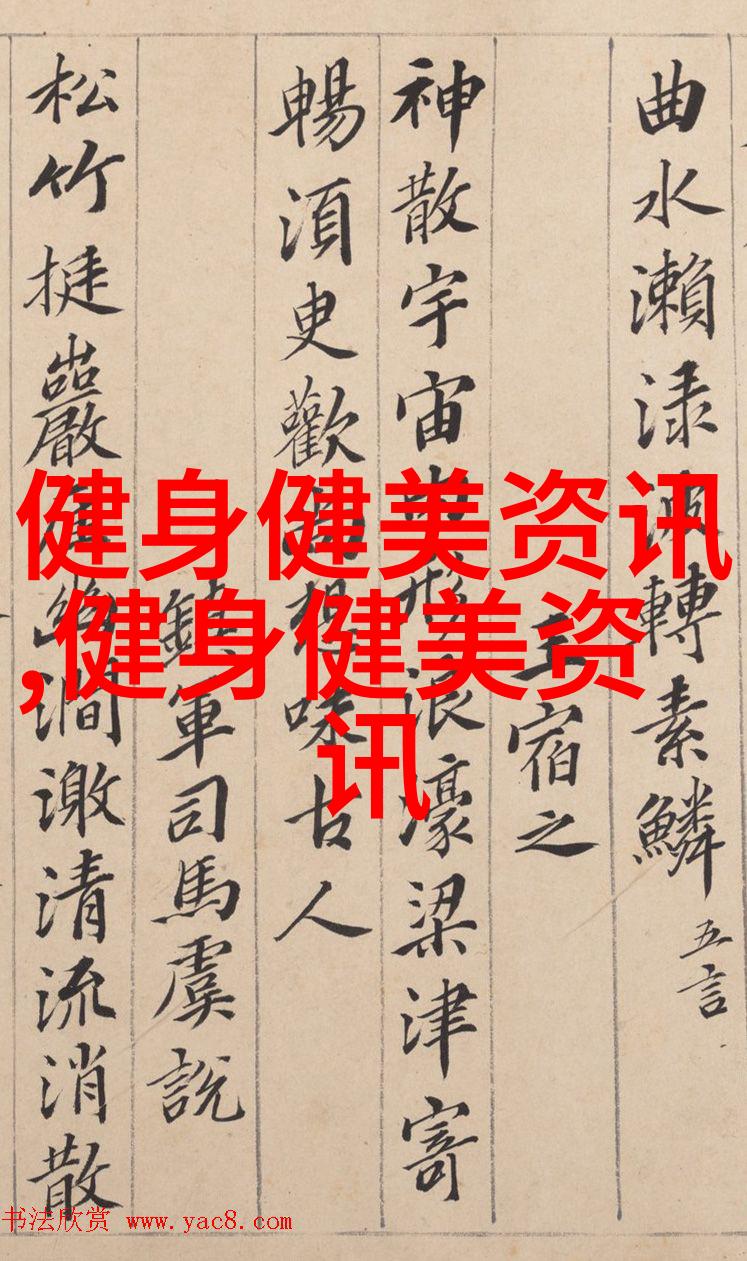 曲水瀨渌波轉素鱗 五言
王宿之
神散宇宙內形浪濠梁津寄
暢須臾歡尚想味古人
鎮軍司馬虞說
松竹挺巖崖幽澗激清流消散
健身健美资讯
,健身健美资
讯
书法欣赏 www.yac8.com